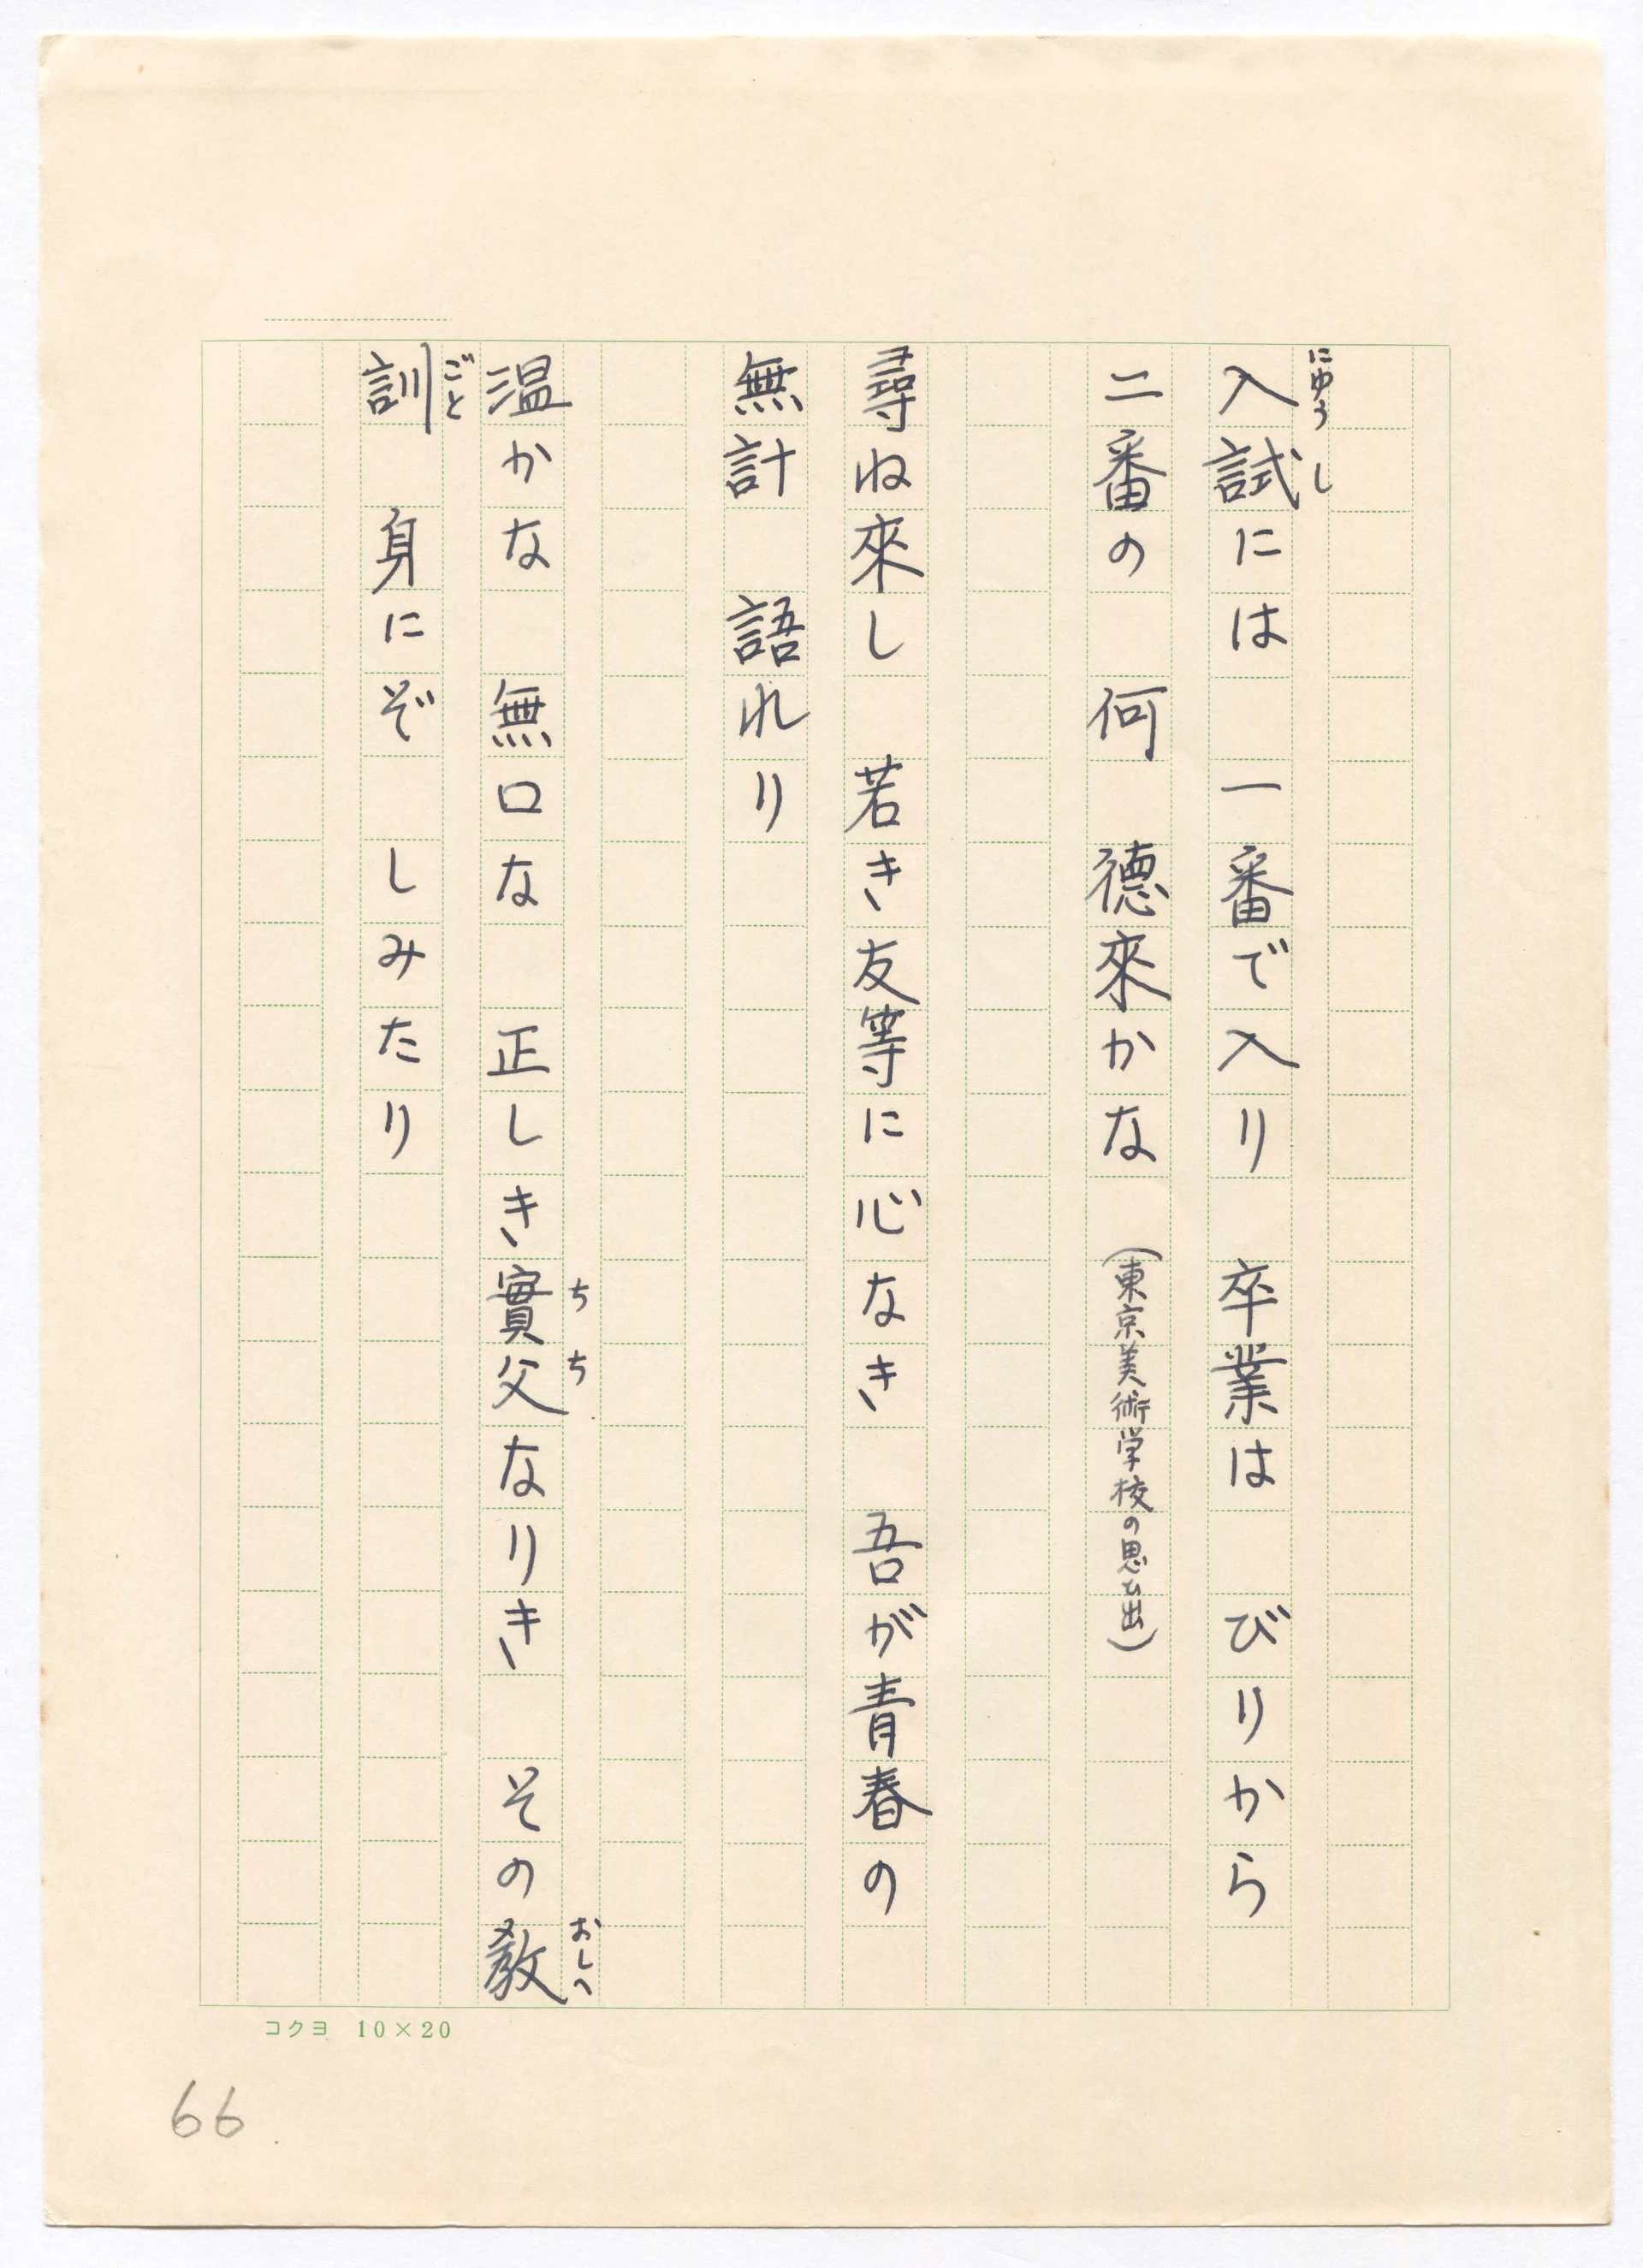 入試には　一番で入り　卒業は　びりから
にゅうし
二番の　何　德來かな　（東京美術学校の思ひ出）
尋ね來し　若き友等に心なき　吾が青春の
無計　語れり
温かな　無口な　正しき實父なりき　その教
ちち
おしへ
訓　身にぞ　しみたり
ごと
コクヨ 10×20
66